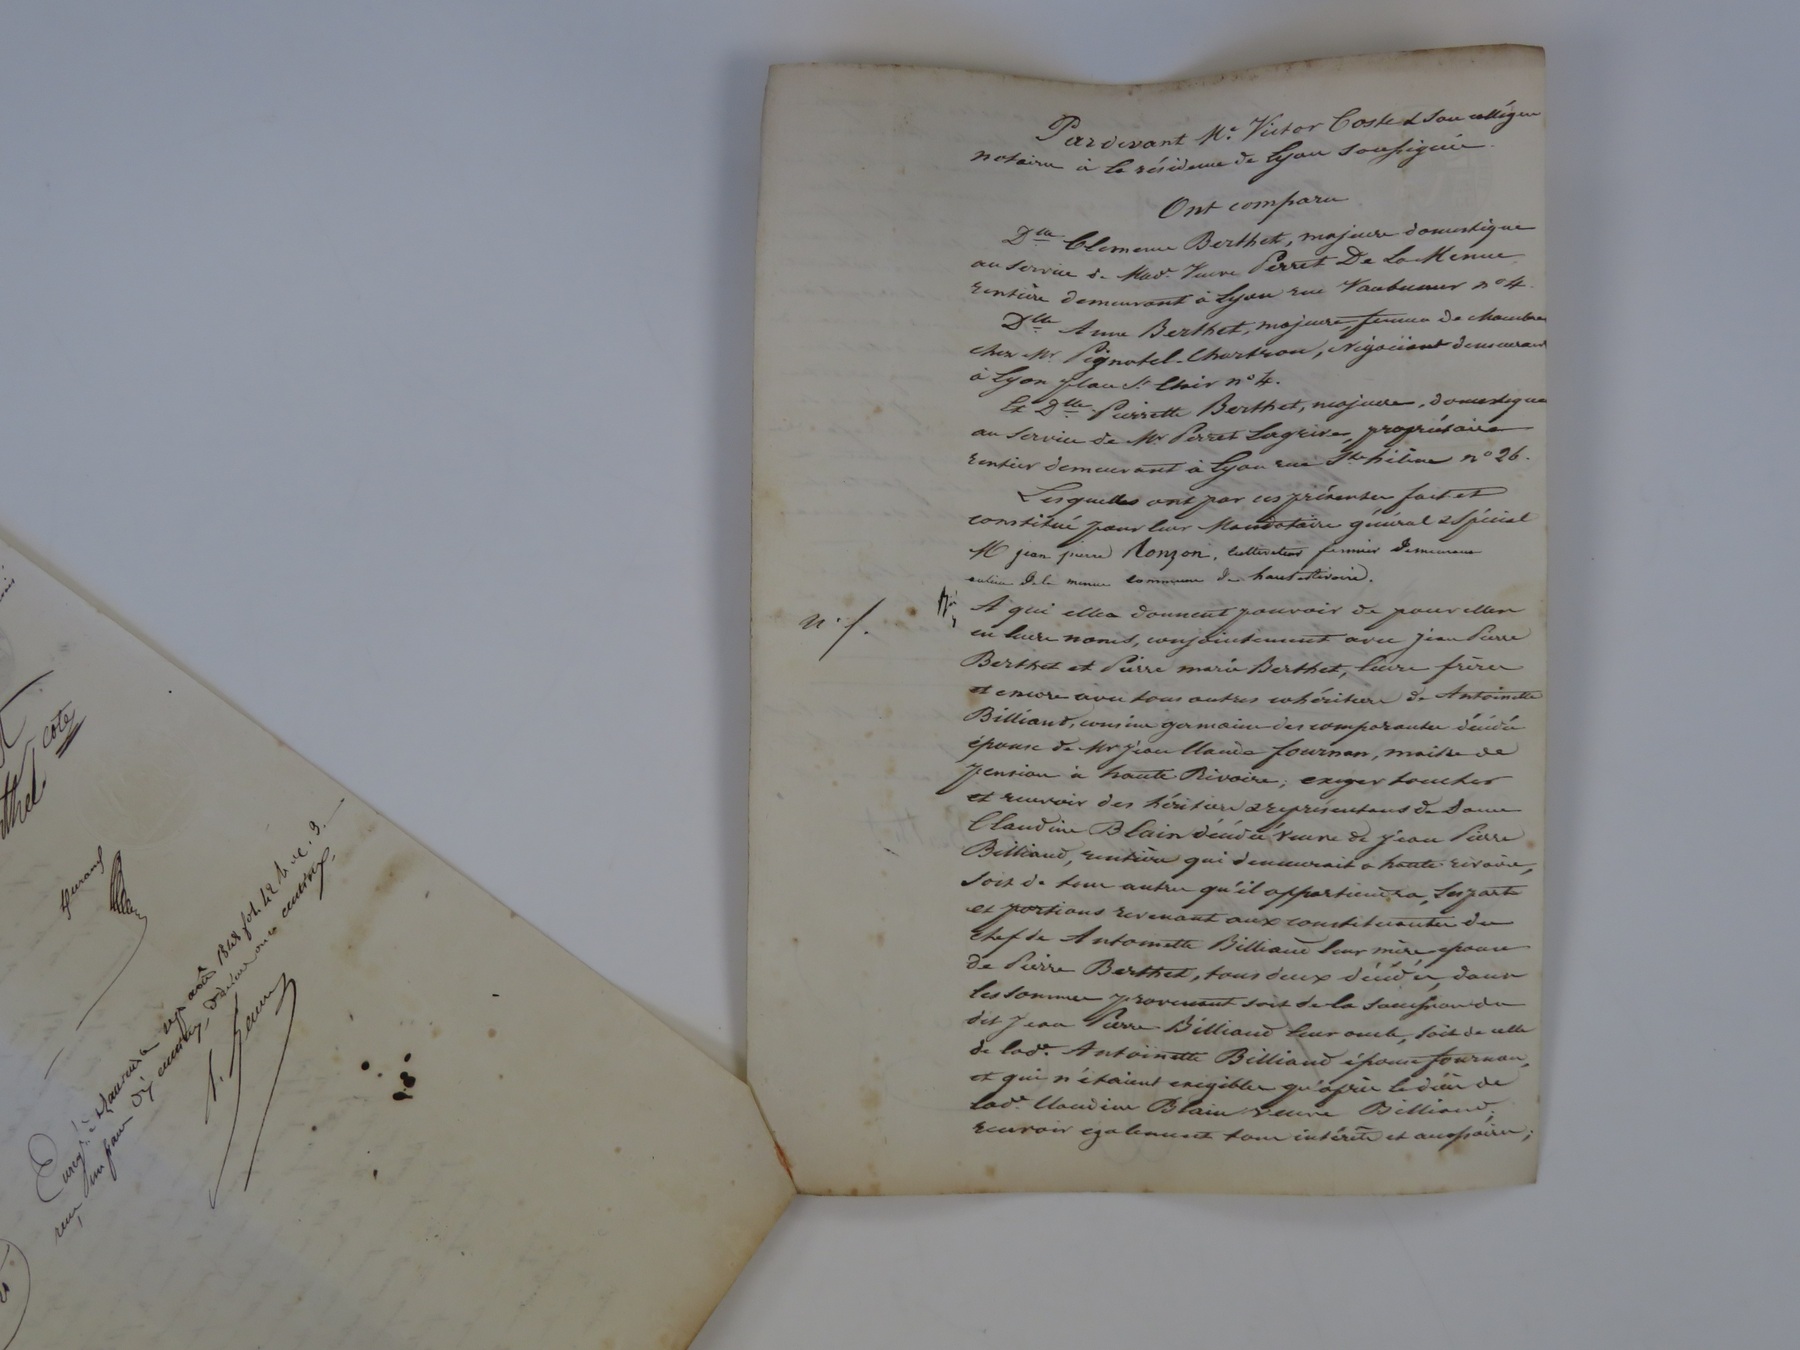 Pardevant Me. Victor Coste & son collègue
notaires à la résidence de Lyon soussignés.
Ont comparu
Dlle Clemence Berthet, majeure domestique
au service de Made. Veuve Perret De La Menue
rentière demeurant à Lyon rue Vaubecour no 4.
Dlle Anne Berthet, majeure, femme de chambre
chez Mr. Pignatel-Chartron, Négociant demeurant
à Lyon place St. Clair no 4.
Et Dlle Pierrette Berthet, majeure, domestique
au service de Mr Perret Lagrive, propriétaire
rentier demeurant à Lyon rue Ste hélène no 26.
Lesquelles ont par ces présentes fait et
constitué pour leur Mandataire général & spécial
M jean pierre Ronzon, cultivateur fermier demeurant
de la menue commune de hauterivoire.
A qui elles donnent pouvoir de pour elles
en leurs noms, conjointement avec Jean Pierre
Berthet et Pierre marie Berthet, leurs frères
et encore avec tous autres cohéritiers de Antoinette
Billiaud, cousine germaine des comparantes décédée
épouse de Mr Jean Claude fournon, maitre de
pension à haute Rivoire; exiger toucher
et recevoir des héritiers & représentans de Dame
Claudine Blain décédée veuve de Jean Pierre
Billiaud, rentière qui demeurait a haute rivoire,
soit de tous autres qu'il appartiendra, les parts
et portions revenant aux constituantes du
chef de Antoinette Billiaud leur mère épouse
de Pierre Berthet, tous deux décédés, dans
les sommes provenant soit de la succession du
dit Jean Pierre Billiaud leur oncle, soit de celle
de lade. Antoinette Billiaud épouse fournon,
et qui n'étaient exigibles qu'après le décès de
lade. Claudine Blain veuve Billiaud;
recevoir egalement tous intérêts et accessoires;
cote
reçu un franc dix centimes, decime onze centimes.